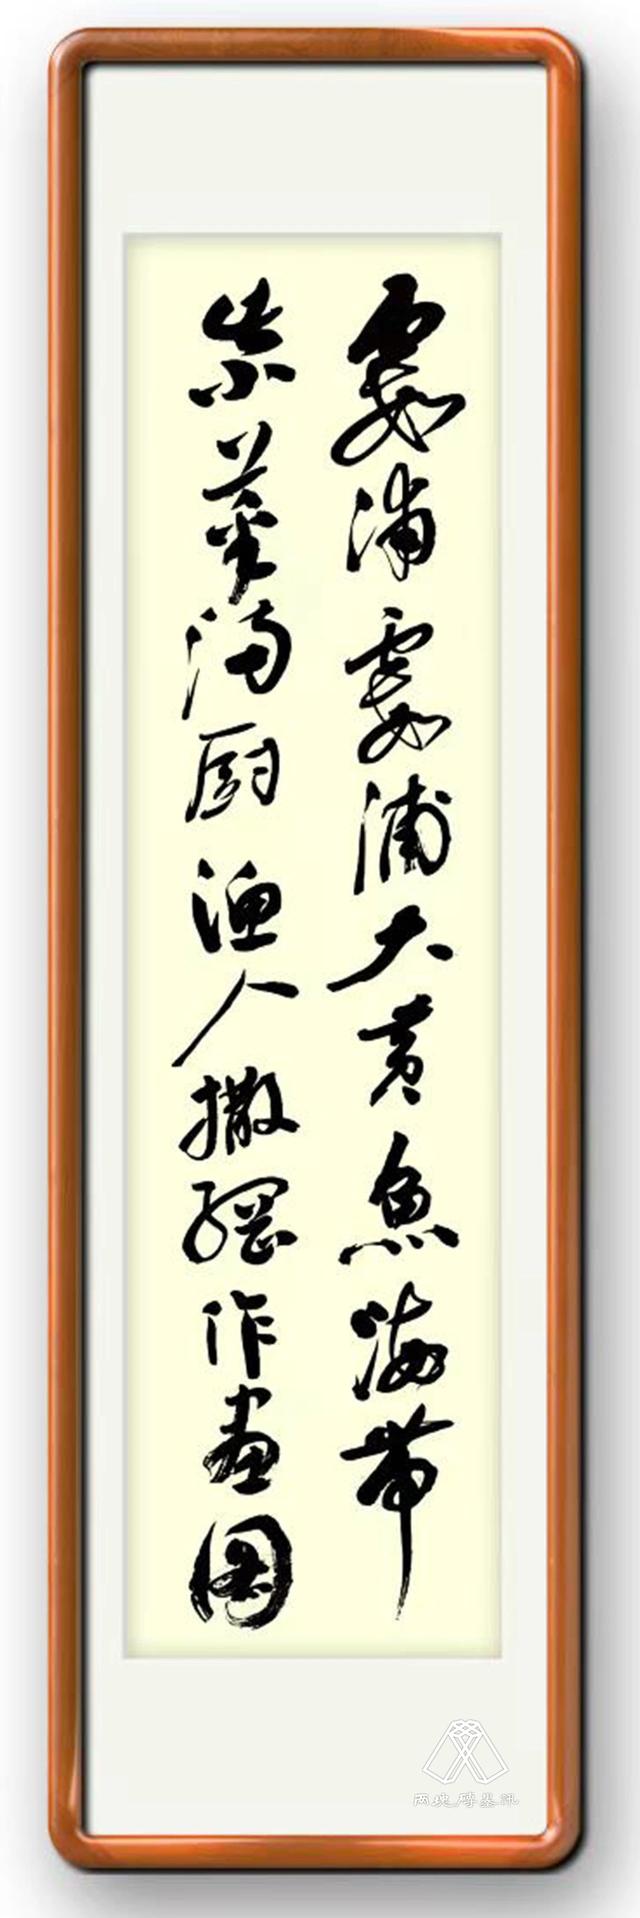 霞浦霞浦大黄魚海带
紫菜满厨渔人撒網作畫图
两塊磚墨訊